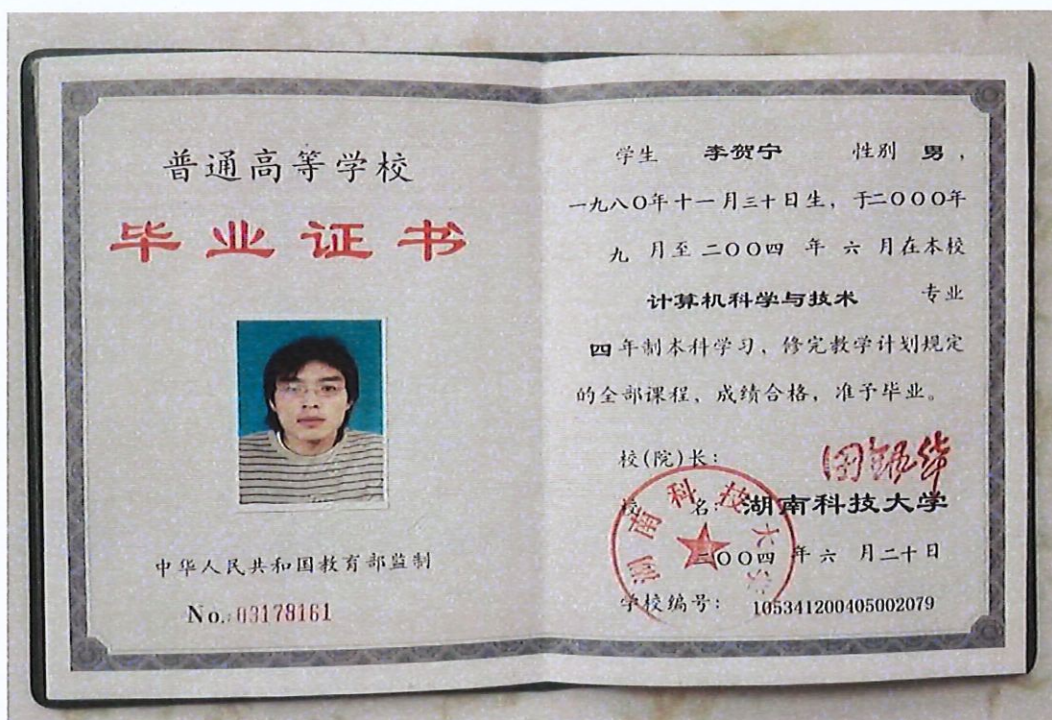 普通高等学校
毕业证书
中华人民共和国教育部监制
No.:03178161
学生 李贺宁 性别 男，
一九八〇年十一月三十日生，于二〇〇〇年
九 月至 二〇〇四 年 六 月在本校
计算机科学与技术 专业
四 年制本科学习、修完教学计划规定
的全部课程，成绩合格，准予毕业。
校(院)长：
校 名：湖南科技大学
二〇〇四 年 六 月二十日
学校编号： 105341200405002079
湖南科技大学